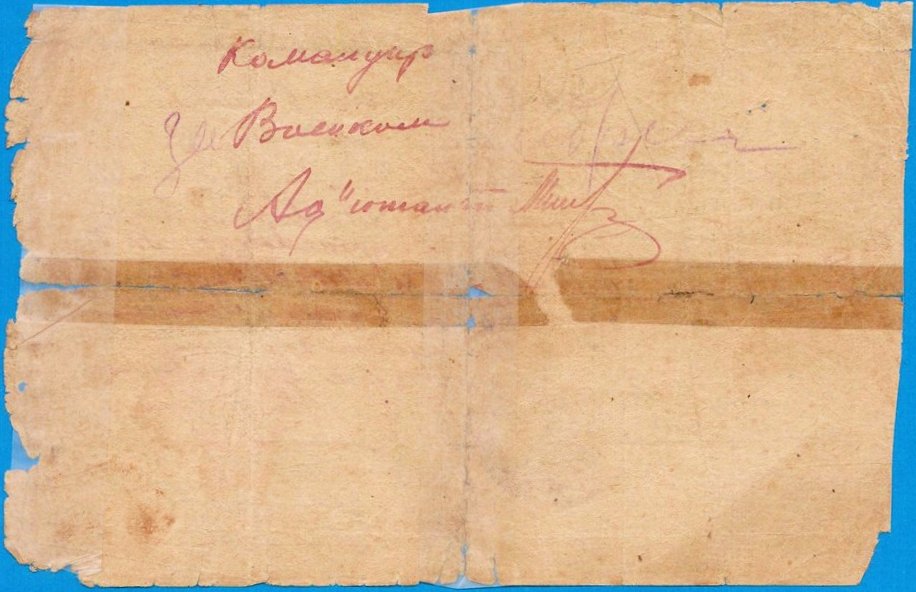 Командир
За Военком
Ад"ютант